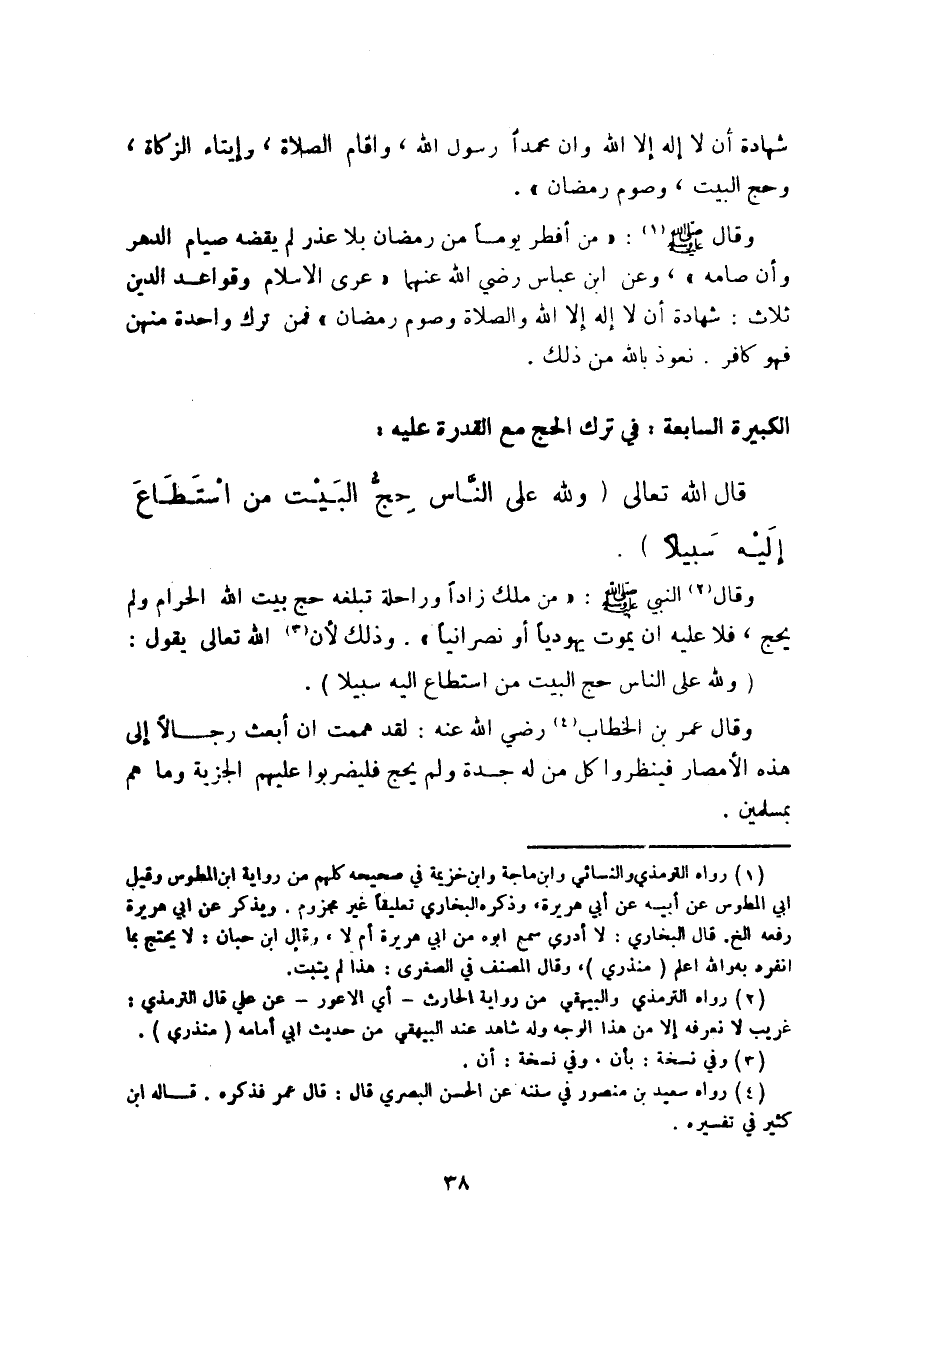 شهادة أن لا إله إلا الله وان محمداً رسول الله ، واقام الصلاة ، وإيتاء الزكاة ،
وحج البيت ، وصوم رمضان » .
وقال ﷺ(١) : « من أفطر يومـاً من رمضان بلا عذر لم يقضه صيام الدهر
وأن صامه » ، وعن ابن عباس رضي الله عنهما « عرى الاسلام وقواعـد الدين
ثلاث : شهادة أن لا إله إلا الله والصلاة وصوم رمضان » فمن ترك واحدة منهن
فهو كافر . نعوذ بالله من ذلك .
الكبيرة السابعة : في ترك الحج مع القدرة عليه :
قال الله تعالى ( ولله على النَّاس حِجُّ البَيْت من اسْتَطَاعَ
إلَيْه سَبيلا ) .
وقال(٢) النبي ﷺ : « من ملك زاداً وراحلة تبلغه حج بيت الله الحرام ولم
يحج ، فلا عليه ان يموت يهودياً أو نصرانياً » . وذلك لأن(٣) الله تعالى يقول :
( ولله على الناس حج البيت من استطاع اليه سبيلا ) .
وقال عمر بن الخطاب(٤) رضي الله عنه : لقد هممت ان أبعث رجـالاً إلى
هذه الأمصار فينظروا كل من له جـدة ولم يحج فليضربوا عليهم الجزية وما هم
بمسلمين .
(١) رواه الترمذي والنسائي وابن ماجة وابن خزيمة في صحيحه كلهم من رواية ابن المطوس وقيل
ابي المطوس عن أبيـه عن أبي هريرة، وذكره البخاري تعليقاً غير مجزوم . ويذكر عن ابي هريرة
رفعه الخ. قال البخاري : لا أدري سمع ابوه من ابي هريرة أم لا ، وقال ابن حبان : لا يحتج بما
انفرد به والله اعلم ( منذري )، وقال المصنف في الصغرى : هذا لم يثبت.
(٢) رواه الترمذي والبيهقي من رواية الحارث – أي الاعور – عن علي قال الترمذي :
غريب لا نعرفه إلا من هذا الوجه وله شاهد عند البيهقي من حديث ابي أمامه ( منذري ) .
(٣) وفي نسخة : بأن ، وفي نسخة : أن .
(٤) رواه سعيد بن منصور في سننه عن الحسن البصري قال : قال عمر فذكره . قـاله ابن
كثير في تفسيره .
٣٨